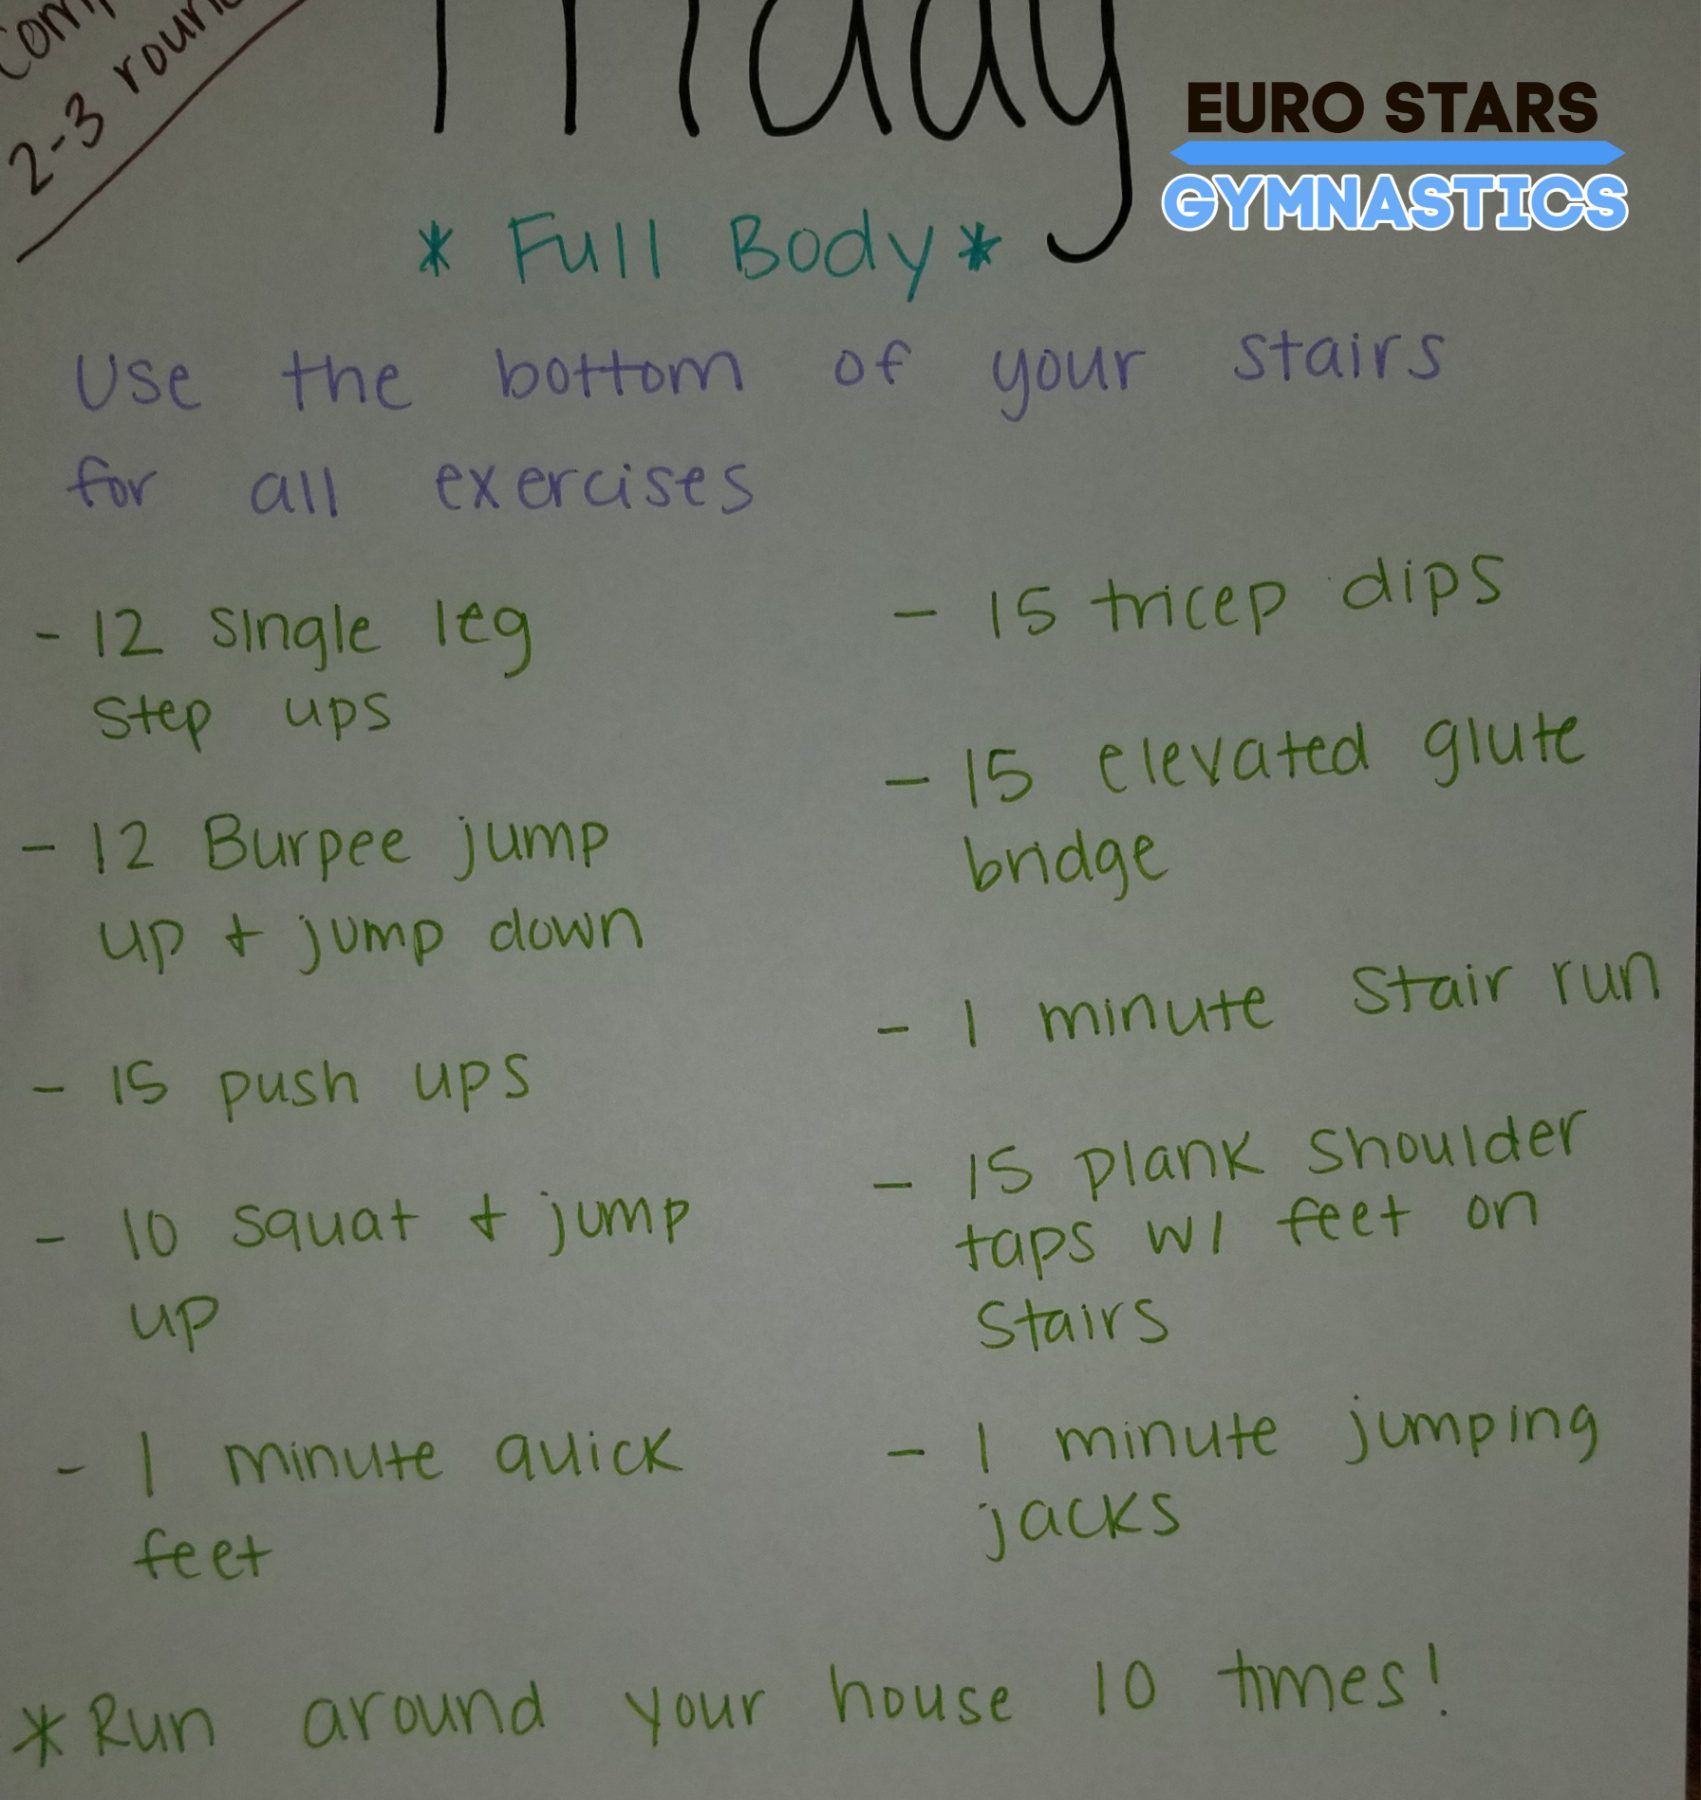 2-3
Friday
EURO STARS
GYMNASTICS
* Full Body *
Use the bottom of your stairs
for all exercises
- 12 single leg
step ups
- 12 Burpee jump
up + jump down
- 15 push ups
- 10 squat + jump
up
- 1 minute quick
feet
- 15 tricep dips
- 15 elevated glute
bridge
- 1 minute stair run
- 15 plank shoulder
taps w/ feet on
stairs
- 1 minute jumping
jacks
*Run around your house 10 times!